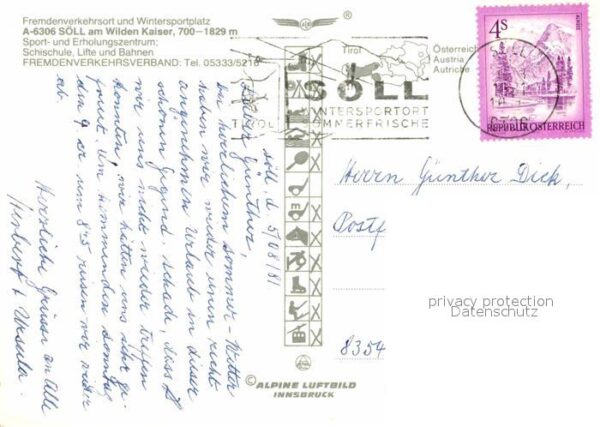 Fremdenverkehrsort und Wintersportplatz
A-6306 SÖLL am Wilden Kaiser, 700-1829 m
Sport- und Erholungszentrum;
Schischule, Lifte und Bahnen
FREMDENVERKEHRSVERBAND: Tel. 05333/5216
Tirol
Österreich
Austria
Autriche
SÖLL
WINTERSPORTORT
TIROL SOMMERFRISCHE
4S
REPUBLIK ÖSTERREICH
Söll, d. 5/08/81
Lieber Günther,
bei herrlichem Sommer-Wetter
haben wir wieder einen recht
angenehmen Urlaub in dieser
schönen Gegend. Schade, dass
wir uns nicht wieder treffen
konnten, wir hätten uns sehr ge-
freut. Am kommenden Sonntag
den 9. er um 8 45 reisen wir wieder
ab.
Herzliche Grüsse an Alle
Herbert + Ursula
Herrn Günther Dick,
Postf
8354
privacy protection
Datenschutz
© ALPINE LUFTBILD
INNSBRUCK